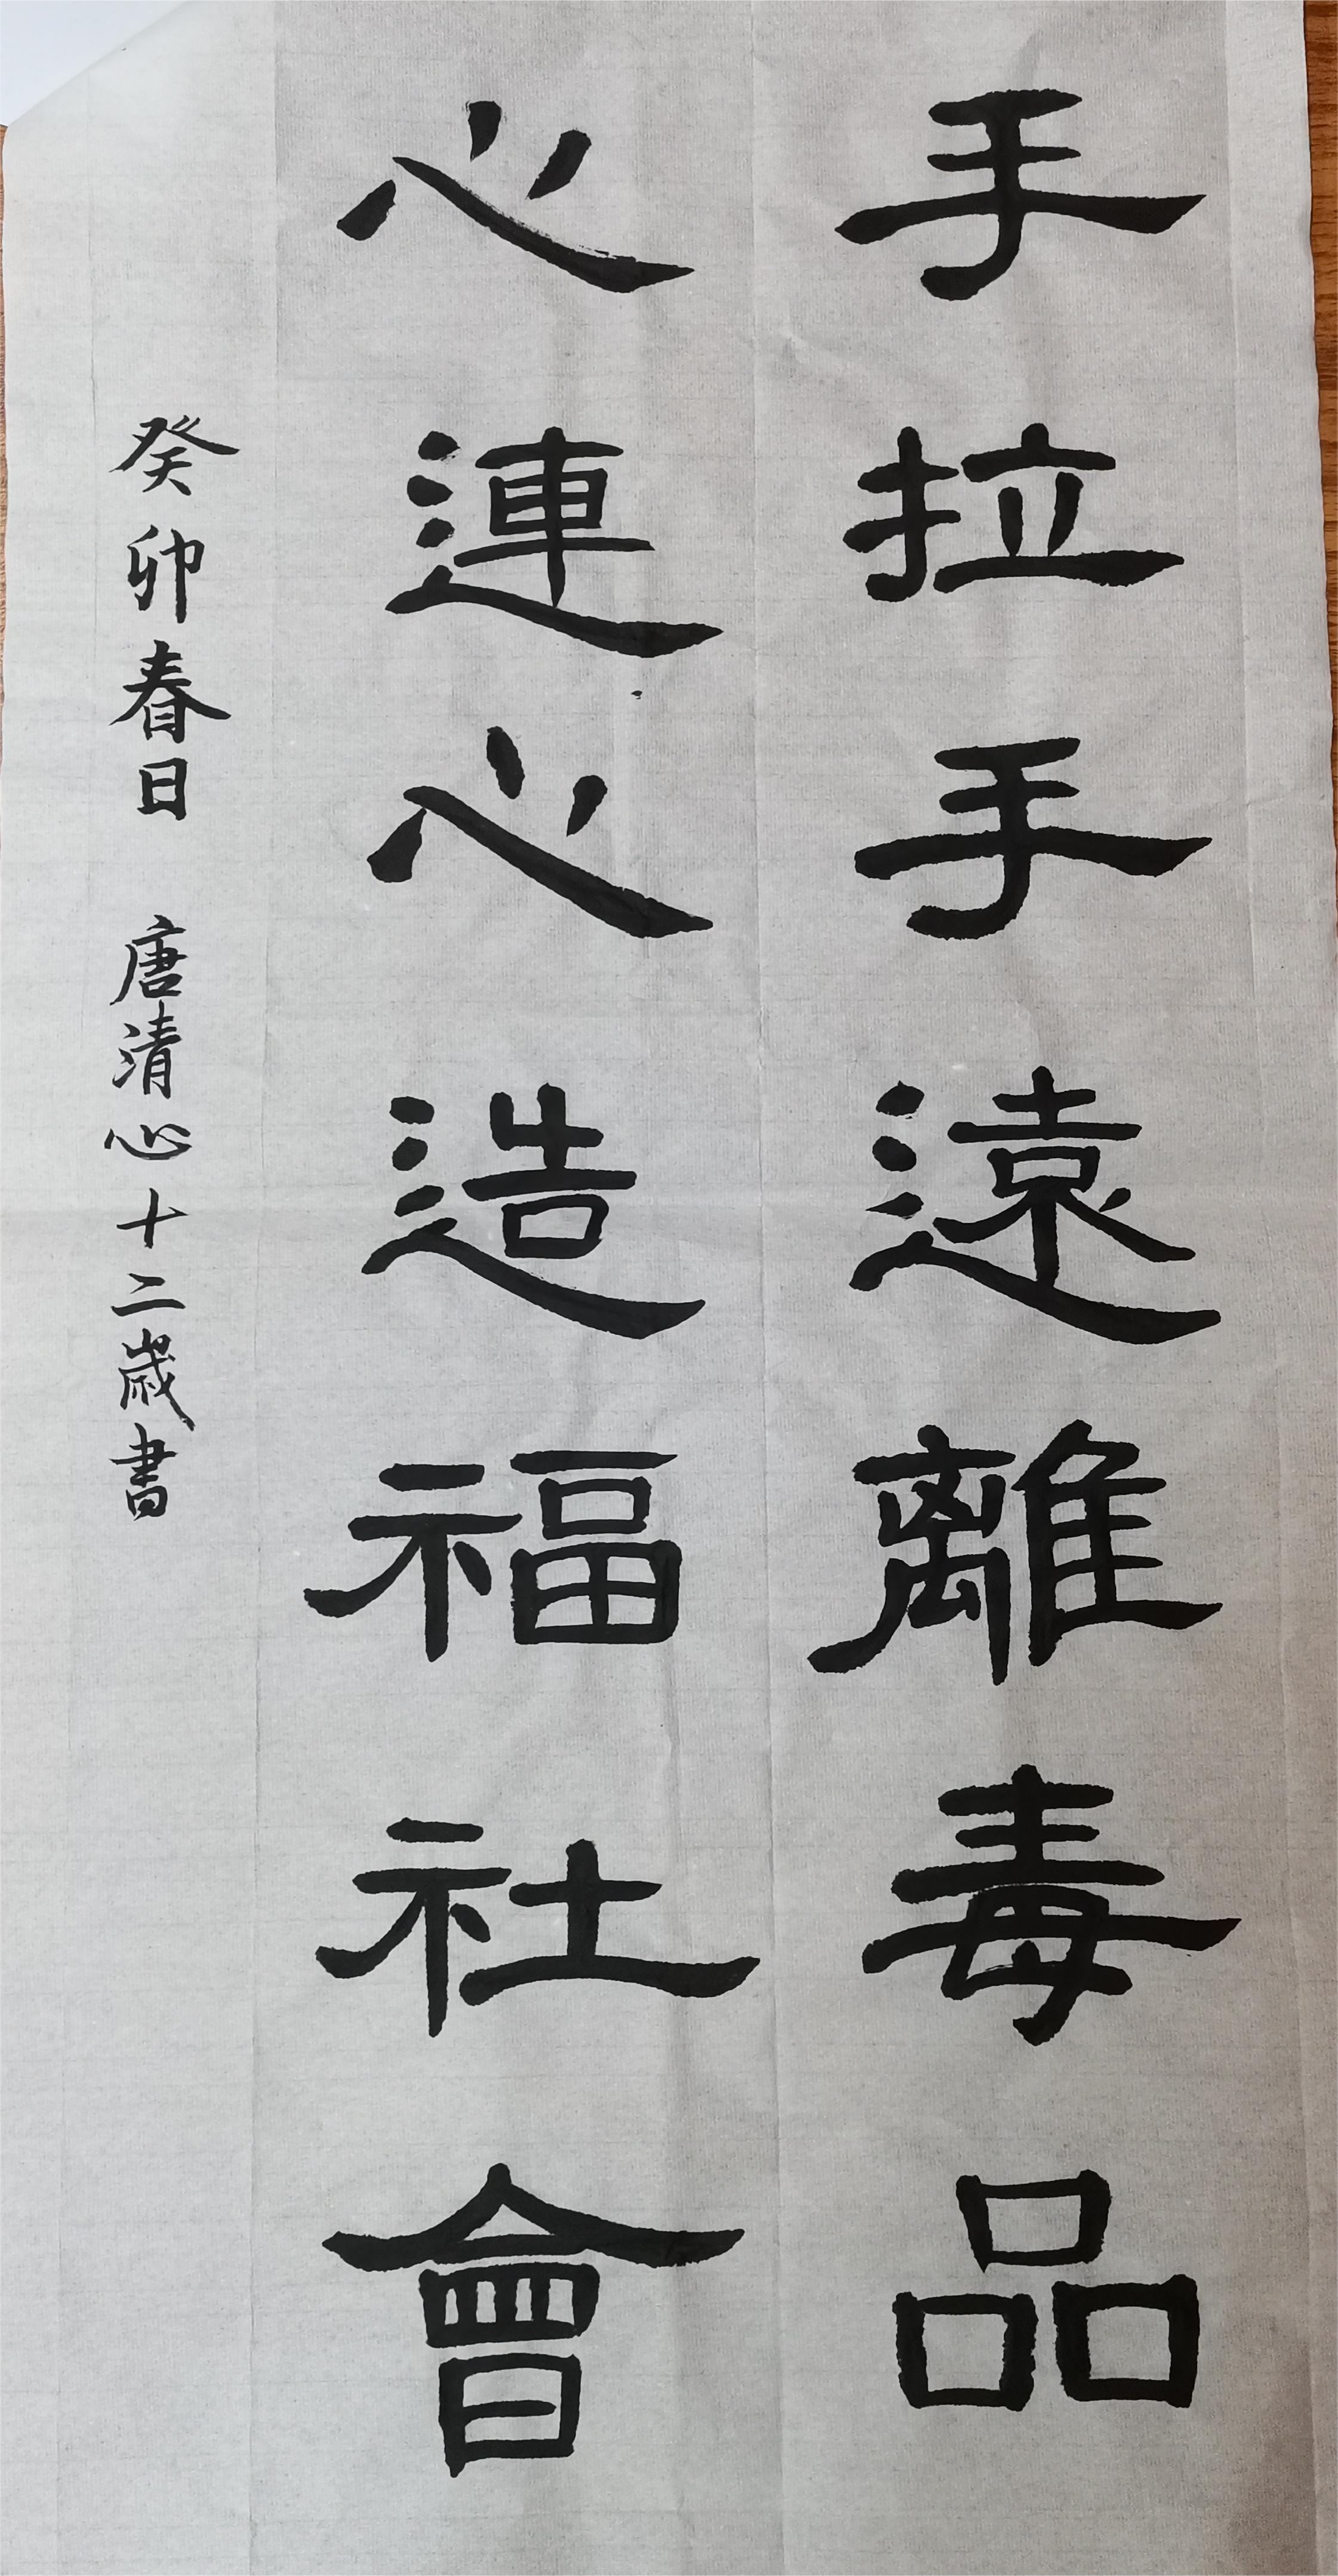 手拉手遠離毒品
心連心造福社會
癸卯春日 唐清心十二歲書